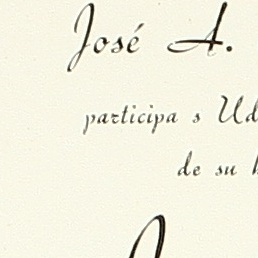 José A.
participa s Ud
de su